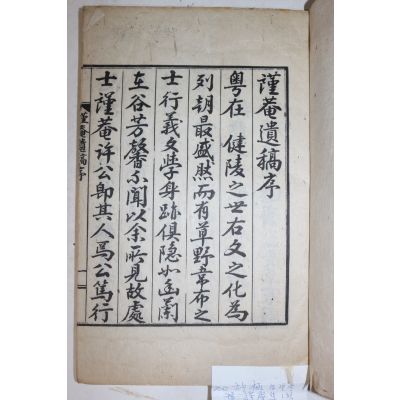 謹菴遺稿序
粤在 健陵之世右文之化爲
列朝最盛然而有草野韋布之
士行義文學身跡俱隱如幽蘭
在谷芳馨不聞以余所見故處
士謹菴許公卽其人焉公篤行
謹菴遺稿序
一